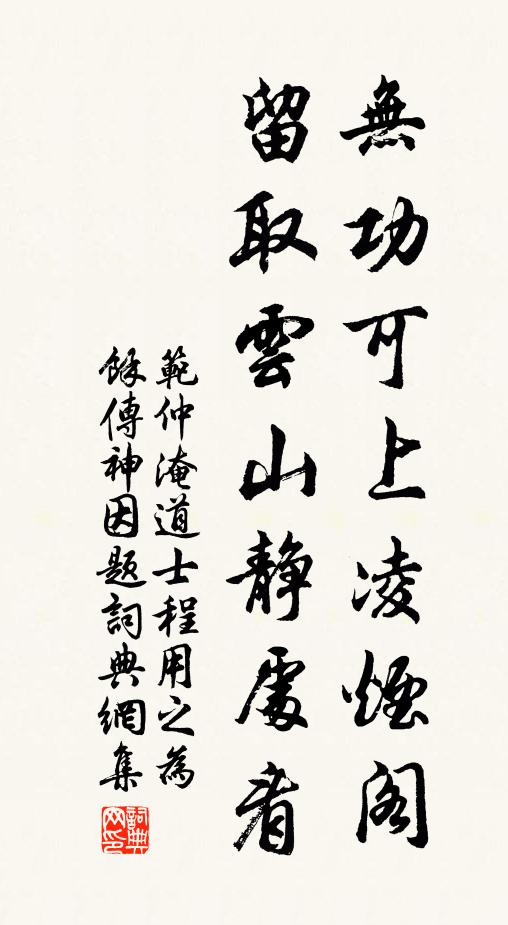 無功可上凌煙閣
留取雲山靜處看
範仲淹道士程用之為
餘傳神因題詞典網集
詞典網印